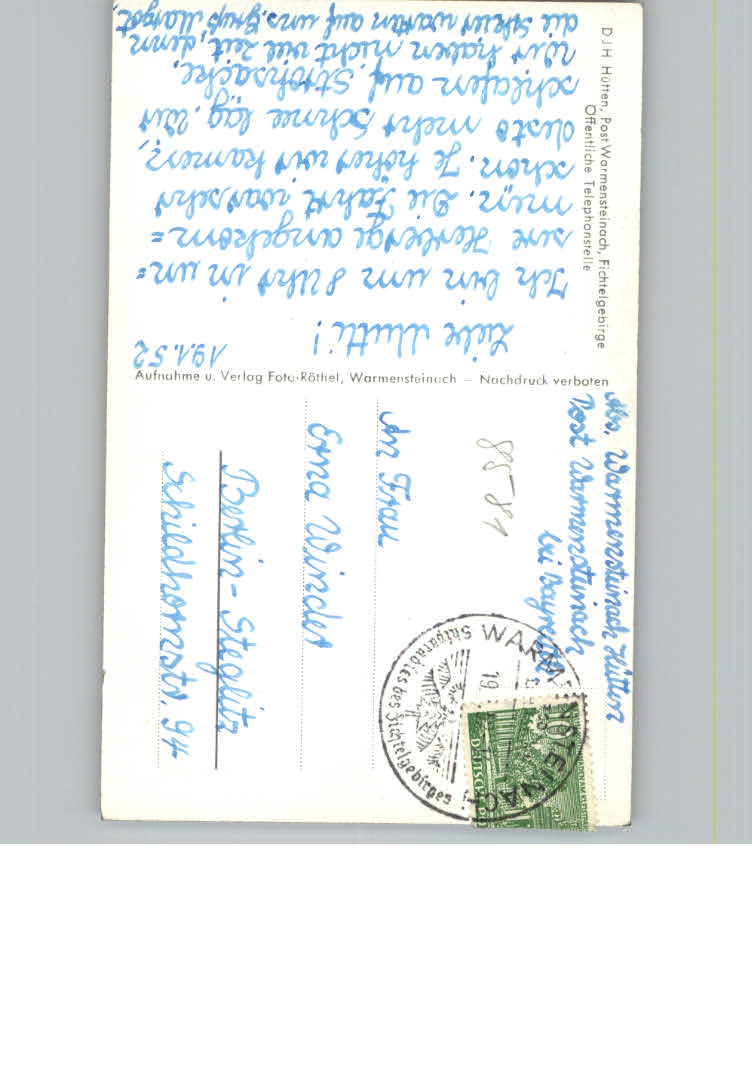 DJH Hütten, Post Warmensteinach, Fichtelgebirge
Öffentliche Telephonstelle
19.1.52
Liebe Mutti!
Ich bin um 8 Uhr in un=
sere Herberge angekom=
men. Die Fahrt war sehr
schön. Je höher wir kamen,
desto mehr Schnee lag. Wir
schlafen auf Strohsäcke.
Wir haben nicht viel Zeit, denn
die Skier warten auf uns. Gruß Margot.
Aufnahme u. Verlag Foto-Röthel, Warmensteinach – Nachdruck verboten
Abs. Warmensteinach Hütten
Post Warmensteinach
bei Bayreuth
8581
An Frau
Erna Winder
Berlin-Steglitz
Schildhornstr. 94
WARMENSTEINACH
Skiparadies des Fichtelgebirges
19
10
DEUTSCHE